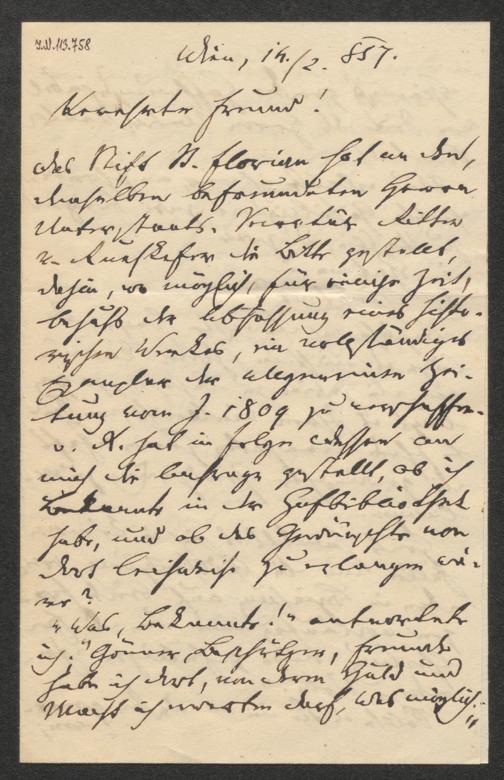 I.N. 113.758
Wien, 14./2. 857.
Verehrter Freund!
das Stift St. Florian hat an den,
demselben befreundeten Herrn
Unterstaats-Secretär Ritter
v. die Bitte gestellt,
dahin, wo möglich, für einige Zeit,
behufs der Abfassung eines histo-
rischen Werkes, ein vollständiges
Exemplar der Allgemeinen Zei-
tung vom J. 1809 zu verschaffen.
v. K. hat in Folge dessen an
mich die Anfrage gestellt, ob ich
Bekannte in der Hofbibliothek
habe, und ob das Gewünschte von
dort leihweise zu erlangen wä-
re?
"Was, Bekannte!" antwortete
ich. "Gönner, Beschützer, Freunde
habe ich dort, von deren Huld und
Macht ich erwarten darf, was möglich."